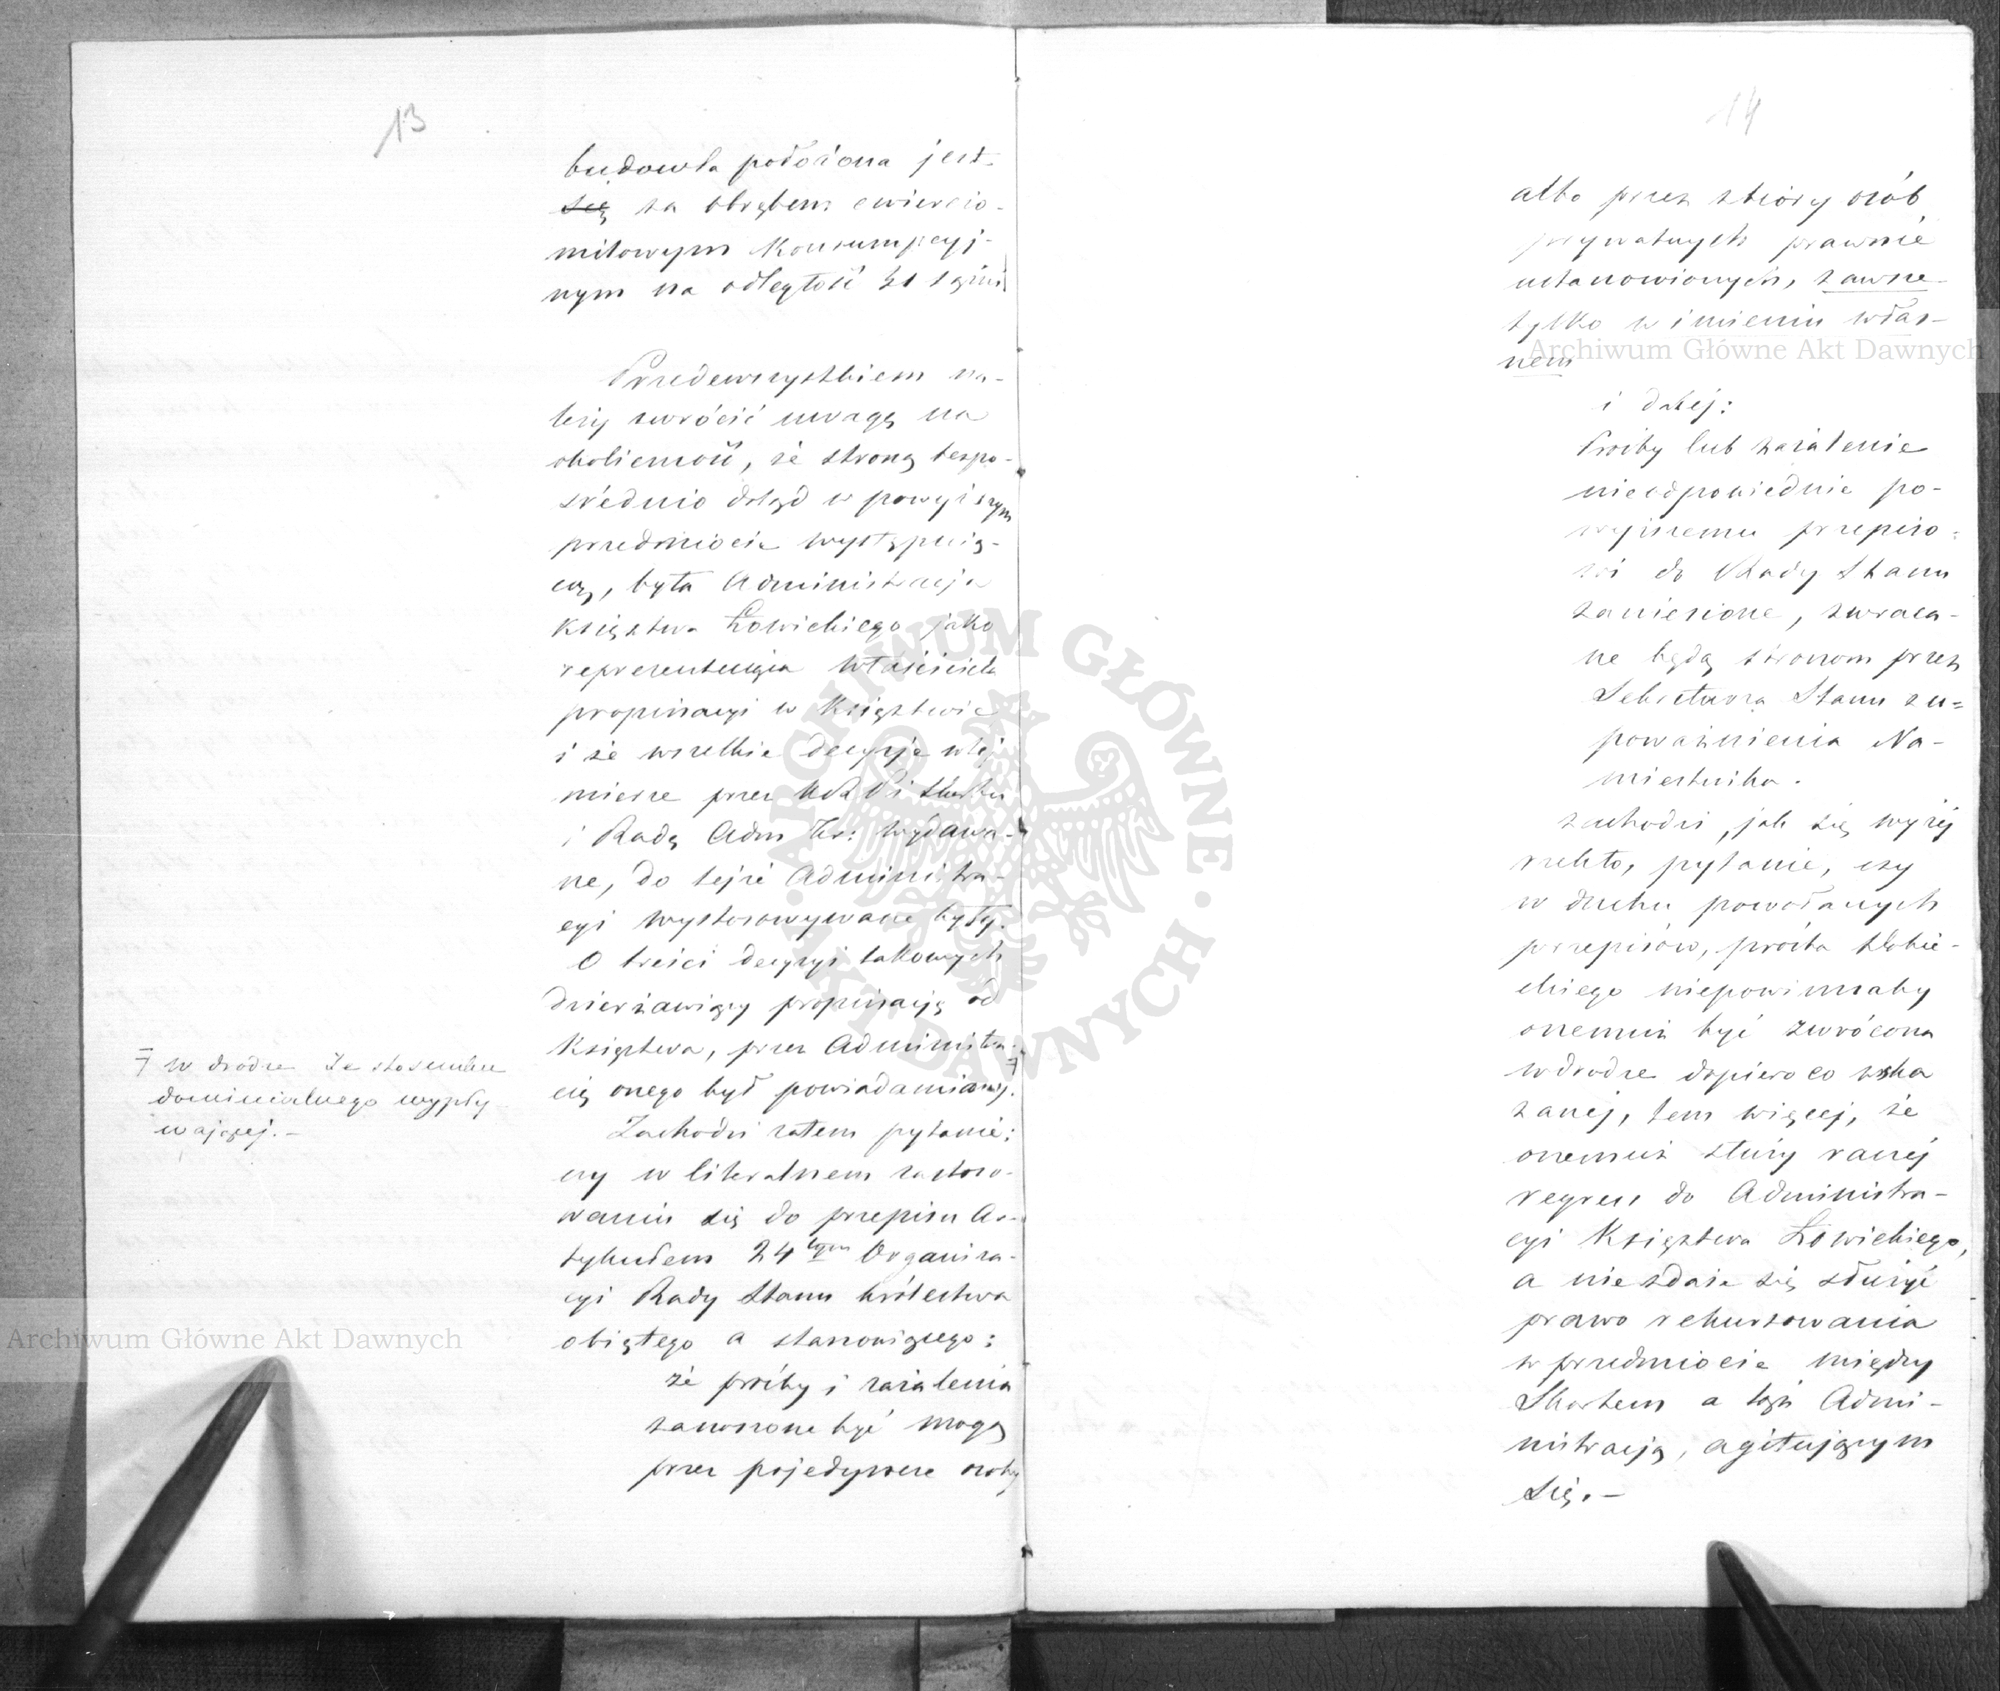 13
budowla położona jest
się za obrębem ćwiercio-
milowym Konsumpcyj-
nym na odległość 21 sążni
Przedewszystkiem na-
leży zwrócić uwagę na
okoliczność, że stroną bezpo-
średnio dotąd w powyższym
przedmiocie występują-
cą, była Administracja
Księztwa Łowickiego jako
reprezentująca właściciela
propinacyi w Księztwie
i że wszelkie decyzje w tej
mierze przez Skarbu
i Radę Adm Kr: wydawa-
ne, do tejże Administra-
cyi wystosowywane były.
O treści decyzyi takowych
dzierżawiący propinacją od
Księztwa, przez Administra-
cią onego był powiadamiany.
7 w drodze ze stosunku
dominialnego wypły-
wającej.-
Zachodzi zatem pytanie:
czy w literalnem zastoso-
waniu się do przepisu Ar-
tykułem 24tym Organiza-
cyi Rady Stanu królestwa
objętego a stanowiącego:
że prośby i zażalenia
zanoszone być mogą
przez pojedyncze osoby
14
albo przez zbiory osób
prywatnych prawnie
ustanowionych, zawsze
tylko w imieniu włas-
nem
i dalej:
Prośby lub zażalenie
nieodpowiednie po-
wyższemu przepiso-
wi do Rady Stanu
zaniesione, zwraca-
ne będą stronom przez
Sekretarza Stanu z u=
poważnienia Na-
miestnika.
zachodzi, jak się wyżej
rzekło, pytanie, czy
w duchu powołanych
przepisów, prośba
niepowinnaby
onemuż być zwrócona
w drodze dopiero co wska
zanej, tem więcej, że
onemuż służy raczej
regress do Administra-
cyi Księztwa Łowickiego,
a nie zdaje się służyć
prawo rekursowania
w przedmiocie między
Skarbem a tąż Admi-
nistracją, agitującym
się.-
Archiwum Główne Akt Dawnych
Archiwum Główne Akt Dawnych
ARCHIWUM GŁÓWNE · AKT DAWNYCH ·